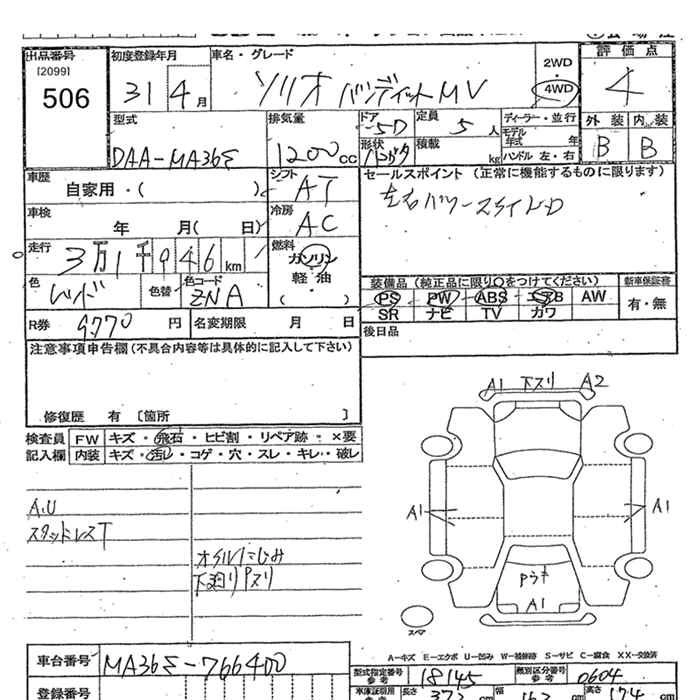 出品番号 初度登録年月 車名・グレード 2WD 評価点
[2099] 506 31 4月 ソリオ バンディット MV 4WD 4
型式 排気量 ドア 5D 定員 5人 ディーラー・並行 外装 内装
DAA-MA36S 1200cc 形状 積載 kg モデル年式 年 B B
ハンドル 左・右
車歴 シフト セールスポイント (正常に機能するものに限ります)
自家用・( ) AT 左右パワースライドD
車検 冷房
年 月( 日) AC
走行 3万1千946km 燃料 ガソリン
軽・油
( )
色 レッド 色替 色コード ZNA
装備品 (純正品に限り○をつけてください) 新車保証書
PS PW ABS エアB AW 有・無
SR ナビ TV カワ
R券 9770円 名変期限 月 日 後日品
注意事項申告欄(不具合内容等は具体的に記入して下さい)
修復歴 有 [箇所 ]
検査員 FW キズ・飛石・ヒビ割・リペア跡・×要
記入欄 内装 キズ・汚レ・コゲ・穴・スレ・キレ・破レ
A1 下スリ A2
A.U
スタッドレスT
A1 A1
オイルにじみ
下廻りPスリ
A1
スペア
A-キズ E-エクボ U-凹み W-補修跡 S-サビ C-腐食 XX-交換済
車台番号 MA36S-766400
型式指定番号 参考 18145 類別区分番号 参考 0604
登録番号
車庫証明用 参考 長さ cm 幅 cm 高さ 174 cm